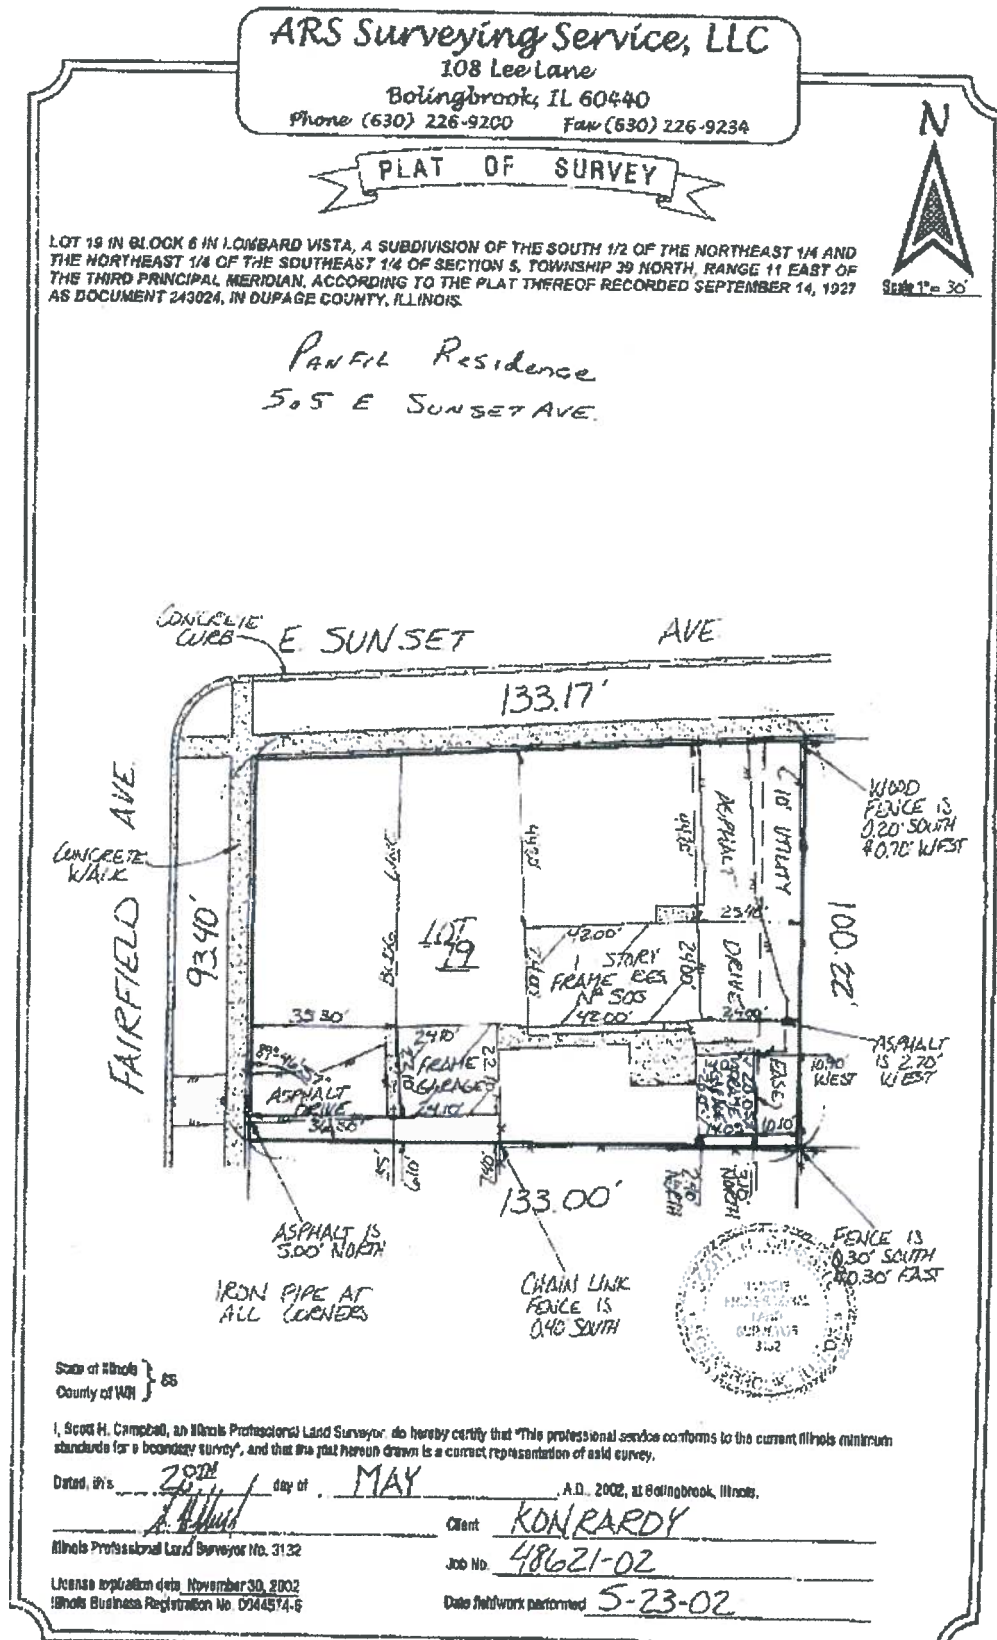 ARS Surveying Service, LLC
108 Lee Lane
Bolingbrook, IL 60440
Phone (630) 226-9200 Fax (630) 226-9234
PLAT OF SURVEY
N
Scale 1" = 30'
LOT 19 IN BLOCK 6 IN LOMBARD VISTA, A SUBDIVISION OF THE SOUTH 1/2 OF THE NORTHEAST 1/4 AND
THE NORTHEAST 1/4 OF THE SOUTHEAST 1/4 OF SECTION 5, TOWNSHIP 39 NORTH, RANGE 11 EAST OF
THE THIRD PRINCIPAL MERIDIAN, ACCORDING TO THE PLAT THEREOF RECORDED SEPTEMBER 14, 1927
AS DOCUMENT 243024, IN DUPAGE COUNTY, ILLINOIS.
PANFIL Residence
505 E SUNSET AVE.
CONCRETE
CURB
E. SUNSET AVE
133.17'
WOOD
FENCE IS
0.20' SOUTH
& 0.70' WEST
CONCRETE
WALK
FAIRFIELD AVE.
93.40'
BLDG LINE
LOT
19
ASPHALT
DRIVE
10' UTILITY
EASE
100.22'
42.00'
1 STORY
FRAME RES
Nº 505
42.00'
24.00'
24.00'
35.30'
24.10'
FRAME
GARAGE
24.10'
ASPHALT
DRIVE
ASPHALT
IS 2.70'
WEST
10.90'
WEST
10.10'
35'
6.10'
7.40'
2.90'
NORTH
3.10'
NORTH
133.00'
ASPHALT IS
5.00' NORTH
IRON PIPE AT
ALL CORNERS
CHAIN LINK
FENCE IS
0.40' SOUTH
FENCE IS
0.30' SOUTH
& 0.30' EAST
ILLINOIS
PROFESSIONAL
LAND
SURVEYOR
3132
State of Illinois
County of Will } SS
I, Scott H. Campbell, an Illinois Professional Land Surveyor, do hereby certify that "This professional service conforms to the current Illinois minimum
standards for a boundary survey", and that the plat hereon drawn is a correct representation of said survey.
Dated, this 28TH day of MAY, A.D., 2002, at Bolingbrook, Illinois.
Client KONRARDY
Illinois Professional Land Surveyor No. 3132
Job No. 48621-02
License expiration date November 30, 2002
Illinois Business Registration No.
Date fieldwork performed 5-23-02